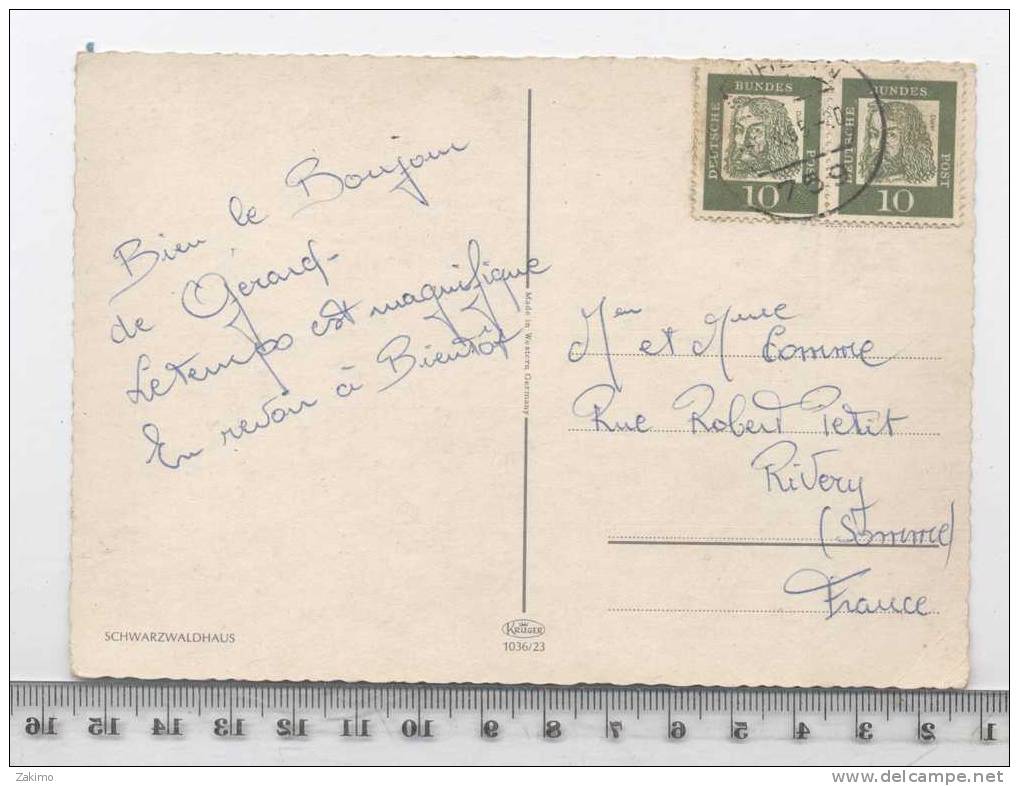 Bien le Bonjour
de Gérard.
Le temps est magnifique
En revoir à Bientôt
Made in Western Germany
DEUTSCHE
BUNDES
POST
10
DEUTSCHE
BUNDES
POST
10
789
Mr et Mme Comme
Rue Robert Petit
Rivery
(Somme)
France
SCHWARZWALDHAUS
KRÜGER
1036/23
16 15 14 13 12 11 10 9 8 7 6 5 4 3 2 1
Zakimo
www.delcampe.net